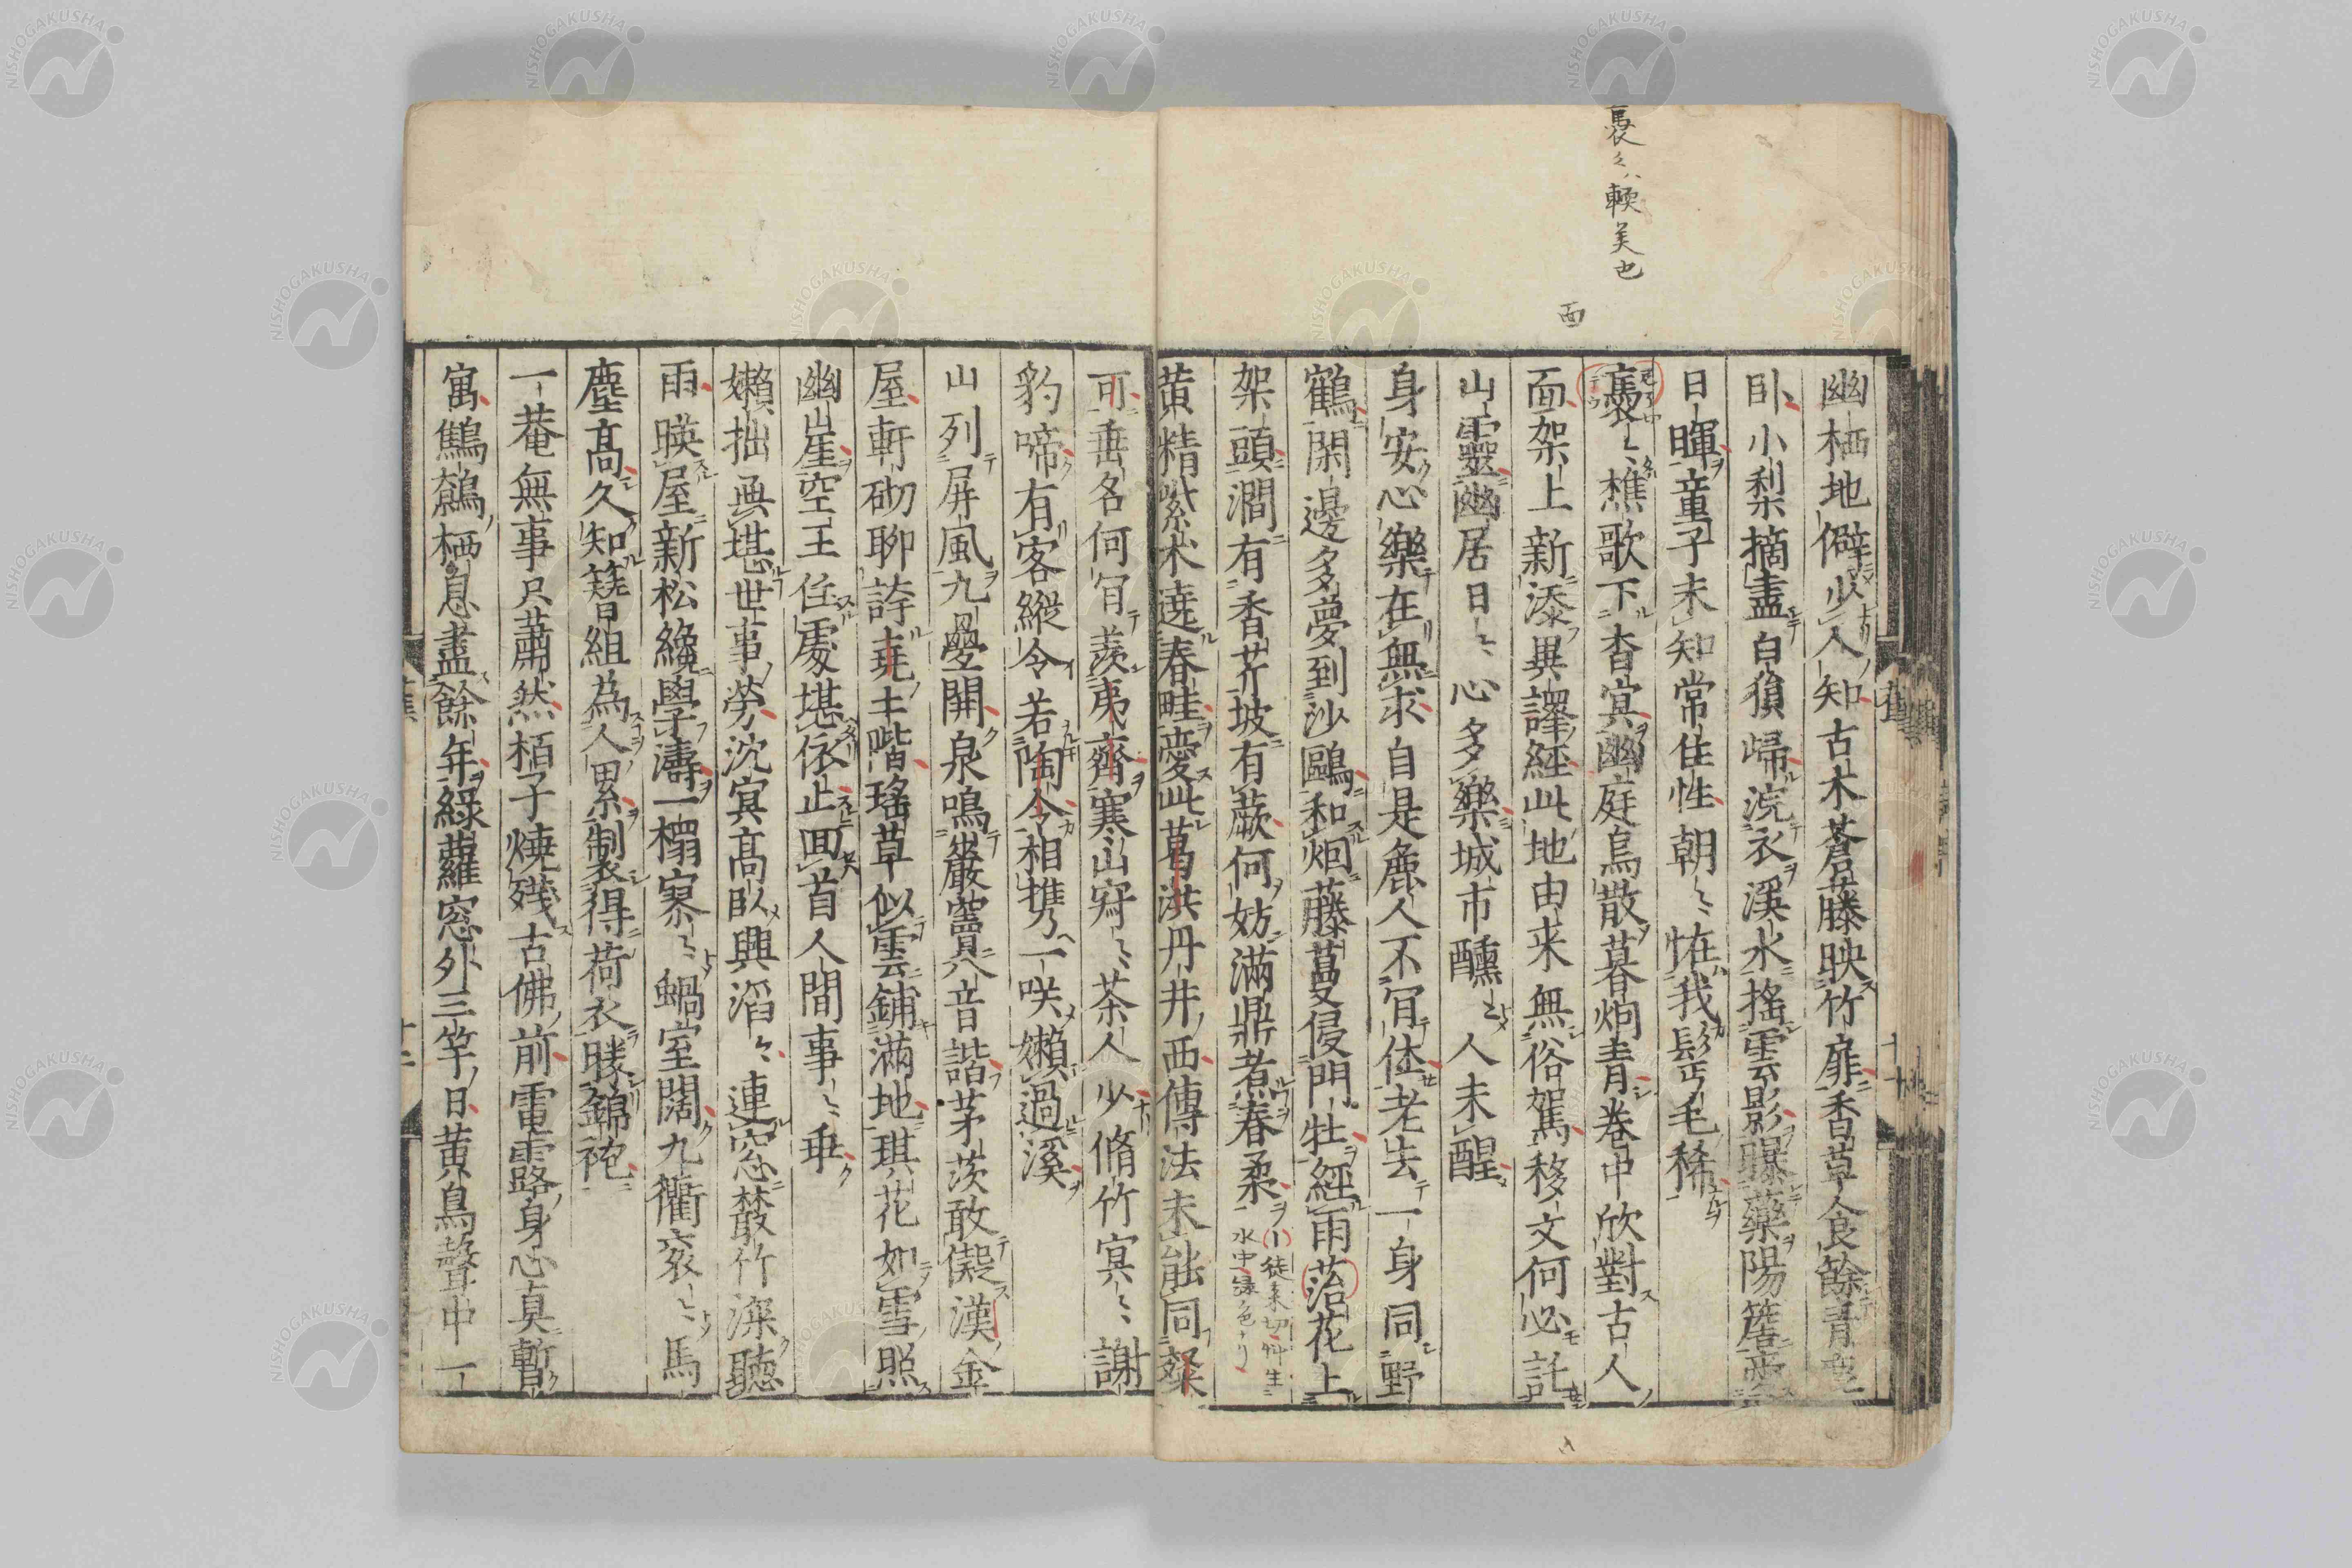 褭々ハ輭美也
面
幽栖地僻少人知古木蒼藤映竹扉香草食餘青
卧小梨摘盡白猿歸浣衣溪水搖雲影曝藥陽簷
日暉童子未知常住性朝〻恠我髩毛稀
褭〻樵歌下杳冥幽庭鳥散暮烟青卷中欣對古人
面架上新添異譯經此地由来無俗駕移文何必託
山靈幽居日〻心多樂城市醺〻人未醒
身安心樂在無求自是麁人不肎㑹老去一身同野
鶴閑邊多夢到沙鷗和烟藤蔓侵門牡經雨落花上
架頭澗有香芹坡有蕨何妨滿鼎煮春柔
小徒系切艸生
水中緑色ナリ
黃精紫朮遶春畦愛此葛洪丹井西傳法未能同粲
可垂名何肎羡夷齊寒山窈〻茶人少脩竹冥〻謝
豹啼有客縱令若陶令相携一咲嬾過溪
山列屏風九疊開泉鳴巖竇八音諧茅茨敢儗漢金
屋軒砌聊誇堯土階瑤草似雲鋪滿地琪花如雪照
幽崖空王住處堪依止囬首人間事〻乖
嬾拙無堪世事勞沈冥高臥興滔〻連窓藂竹深聽
雨暎屋新松纔學濤一榻寥〻蝸室闊九衢衮〻馬
塵高久知簪組為人累製得荷衣勝錦袍
一菴無事只蕭然栢子燒殘古佛前電露身心真暫
寓鷦鷯栖息盡餘年綠蘿窓外三竿日黃鳥聲中一